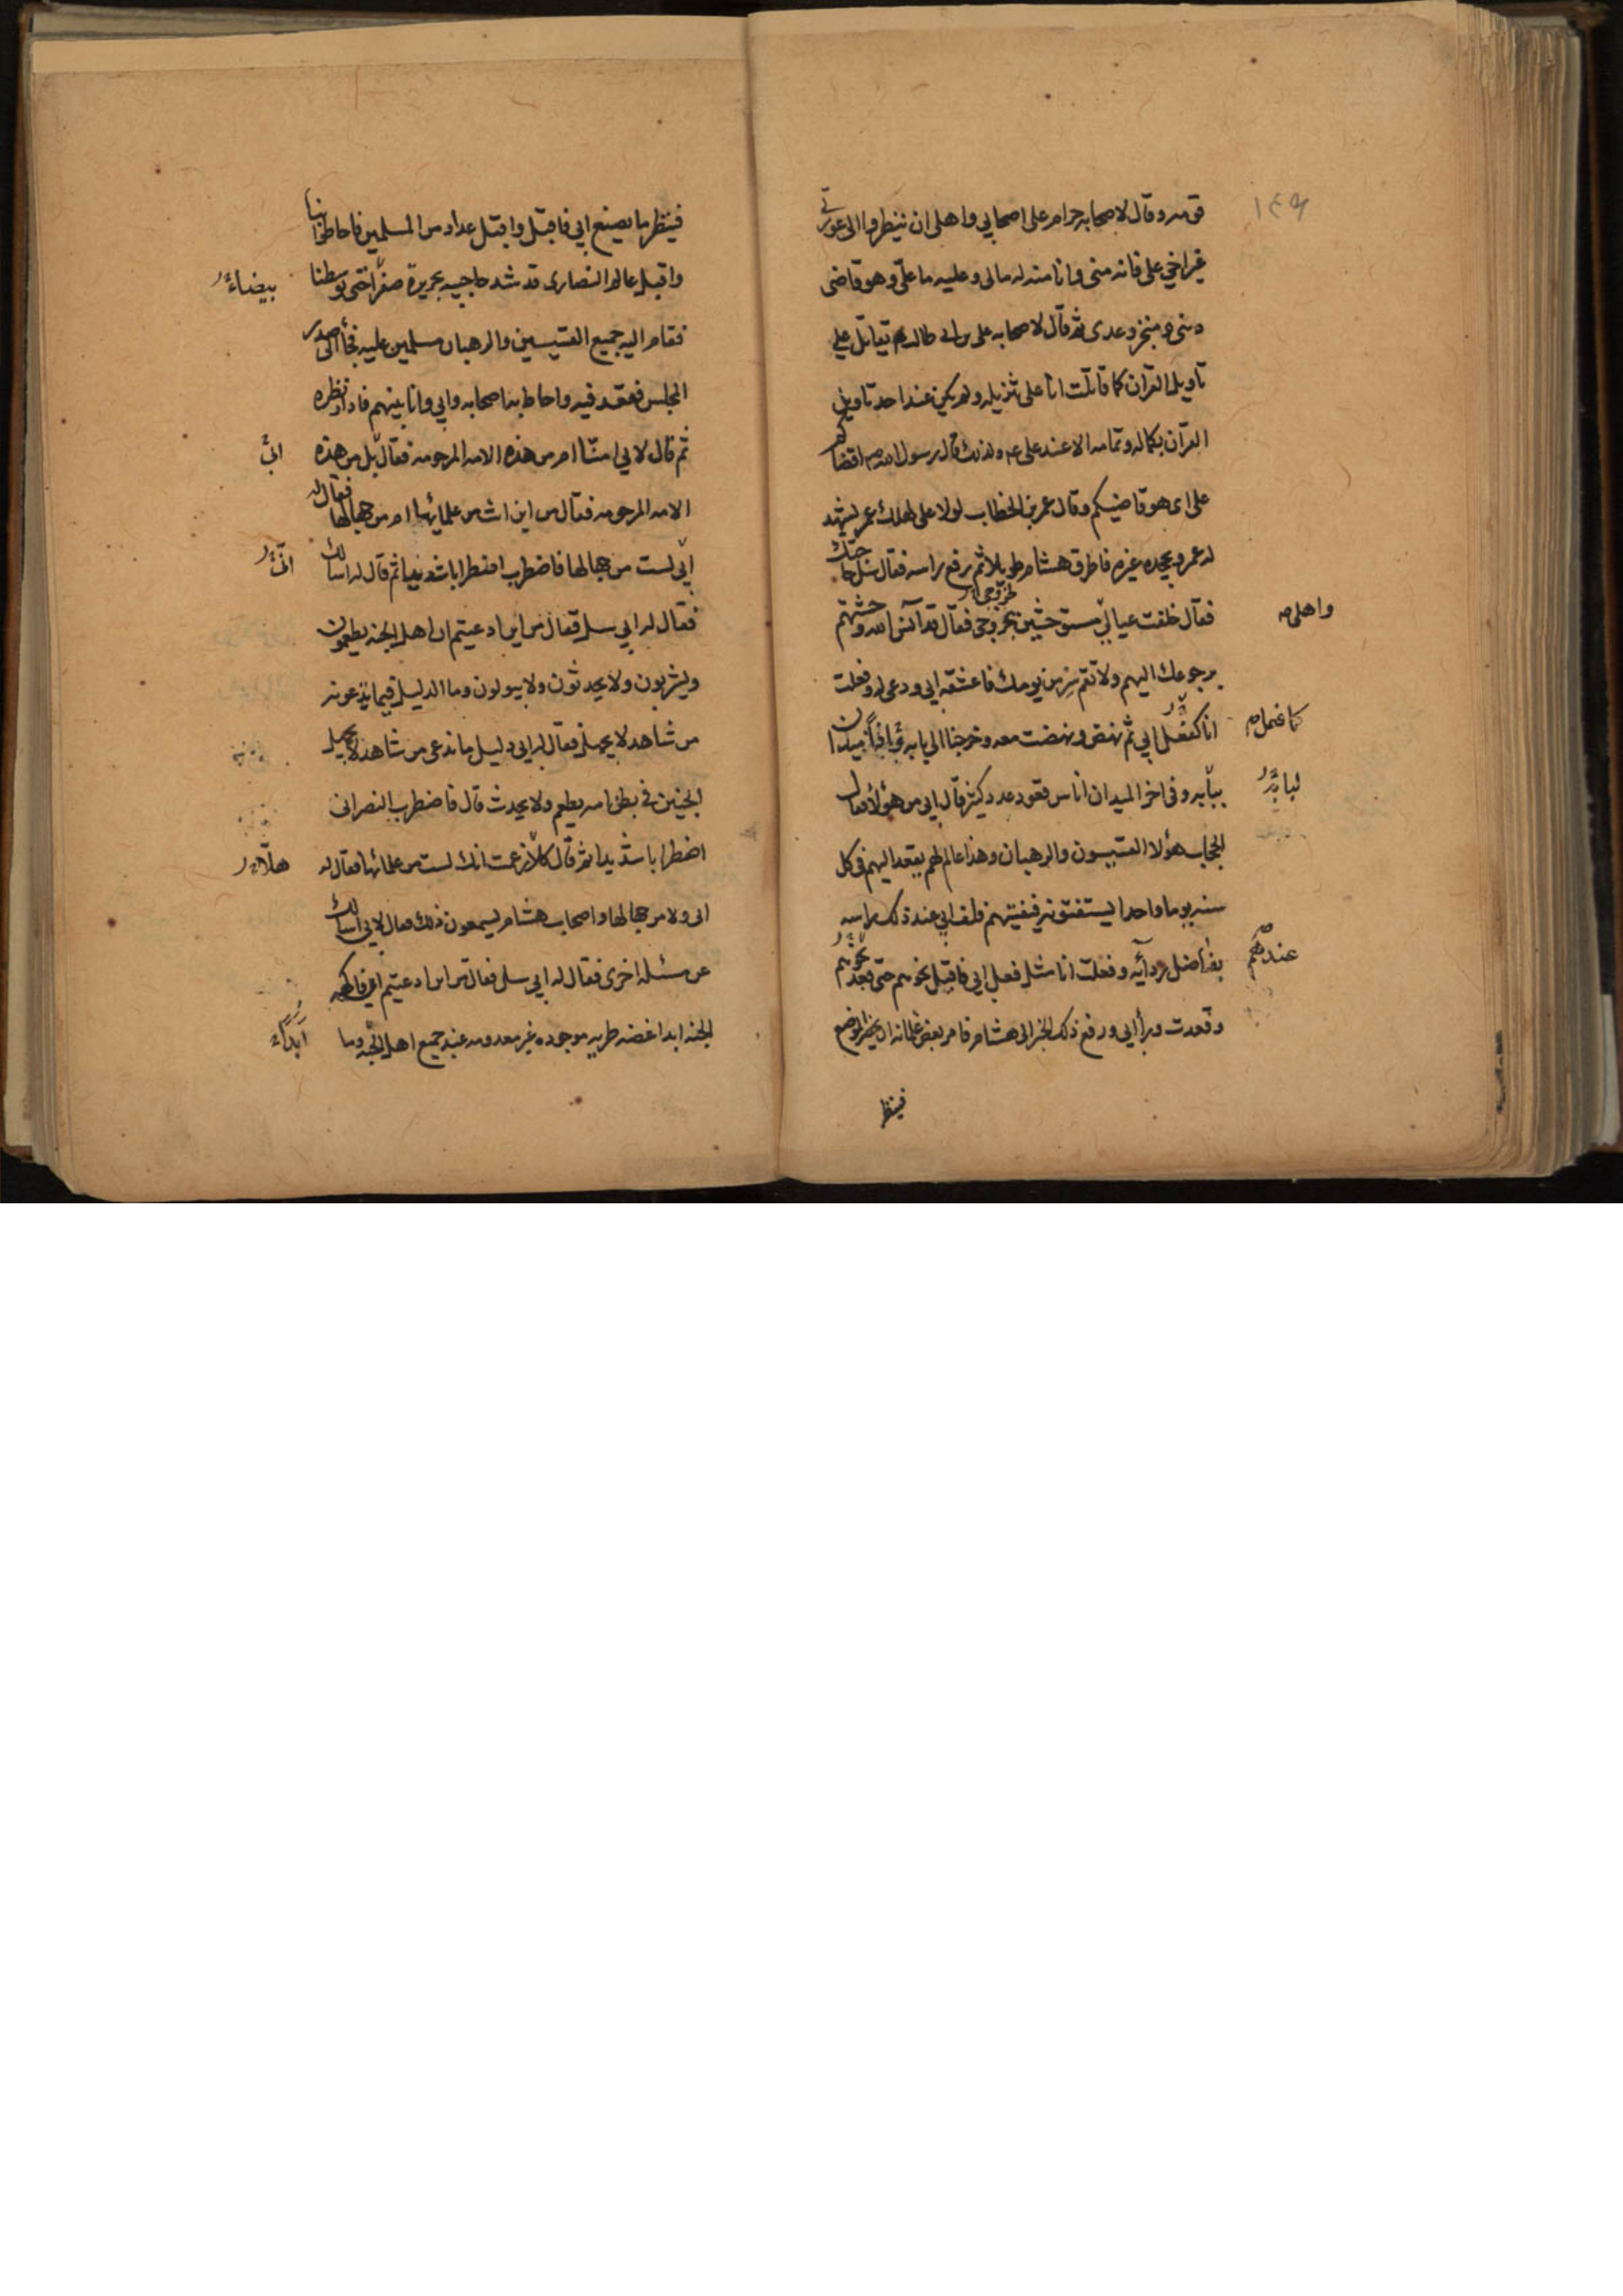 ١٤٩
قومه وقال لاصحابه حرام على اصحابي واهلى ان ينظروا الى عورتى
غير اخي على فانه منى وانا منه له مالى وعليه ما علىّ وهو قاضى
دينى ومنجز وعدى ثم قال لاصحابه على بن ابى طالب يقاتل على
تاويل القرآن كما قاتلت انا على تنزيله ولم يكن عند احد تاويل
القرآن بكماله وتمامه الا عند على عم ولذلك قال رسول الله ص اقضاكم
على اى هو قاضيكم وقال عمر بن الخطاب لولا على لهلك عمر يشهد
له عمر ويجحده غيره فاطرق هشام طويلا ثم رفع راسه فقال سل حاجتك
فقال خلفت عيالى مستوحشين بخروجى فقال قد آنس الله وحشتهم
لخروجى
واهلى
برجوعك اليهم ولا تقم سر من يومك فاعتنقه ابى ودعى له وفعلت
انا كفعل ابى ثم نهض ونهضت معه وخرجنا الى بابه فاذا ميدان
كما فعل
ببابه وفى اخر الميدان اناس قعود عدد كثير قال ابى من هؤلاء فقال
الحجاب هؤلا القسيسون والرهبان وهذا عالم لهم يقعد اليهم فى كل
سنه يوما واحدا يستفتونه فيفتيهم فلف ابى عند ذلك راسه
بفاضل ردآئه وفعلت انا مثل فعل ابى فاقبل نحوهم حتى قعد نحوهم
عندهم
وقعدت ورأ ابى ورفع ذلك الخبر الى هشام فامر بعض غلمانه ان يحضر الموضع
فينظر
فينظر ما يصنع ابى فاقبل واقبل عداد من المسلمين فاحاطوا بنا
واقبل عالم النصارى قد شد حاجبيه بحريرة صفرا حتى توسطنا
بيضاء
فقام اليه جميع القسيسين والرهبان مسلمين عليه فجأ الى صدر
المجلس فقعد فيه واحاط به اصحابه وابى وانا بينهم فادار نظره
ثم قال لابى امنّا ام من هذه الامه المرحومه فقال بل من هذه
الامه المرحومه فقال من اين انت من علمائها ام من جهالها فقال له
ابى لست من جهالها فاضطرب اضطرابا شديدا ثم قال له اسالك
فقال له ابى سل فقال من اين ادعيتم ان اهل الجنه يطعمون
ويشربون ولا يحدثون ولا يبولون وما الدليل فيما تدعونه
من شاهد لا يجهل فقال له ابى دليل ما ندعى من شاهد لا يجهل
الجنين فى بطن امه يطعم ولا يحدث قال فاضطرب النصرانى
اضطرابا شديدا ثم قال كلا زعمت انك لست من علمائها فقال له
هلّا
ابى ولا من جهالها واصحاب هشام يسمعون ذلك فقال لابى اسالك
عن مسئله اخرى فقال له ابى سل فقال من اين ادعيتم ان فاكهه
الجنه ابدا غضه طريه موجوده غير معدومه عند جميع اهل الجنّه وما
ابدًا